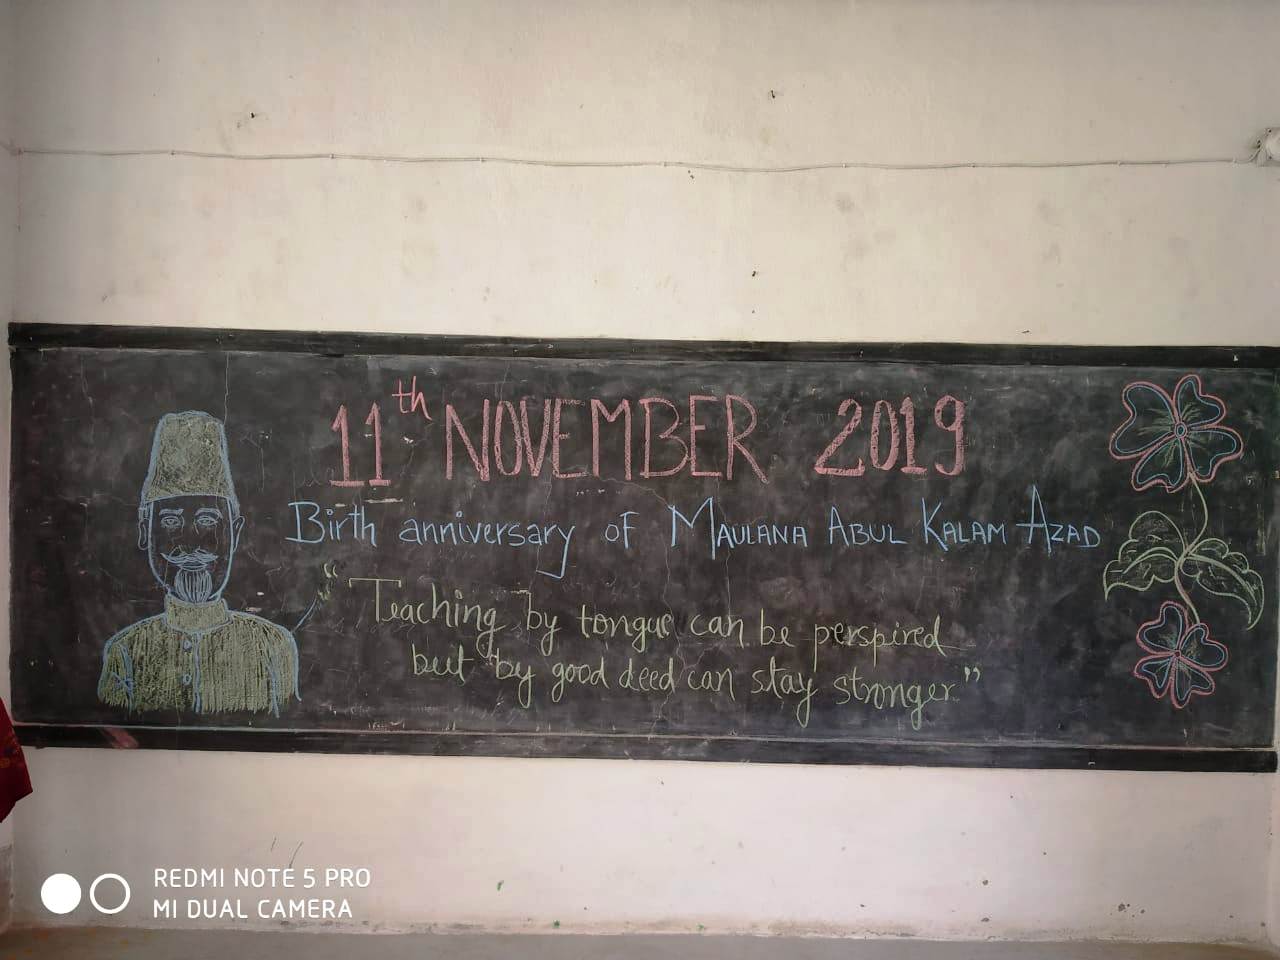 11th NOVEMBER 2019
Birth anniversary of MAULANA ABUL KALAM AZAD
“Teaching by tongue can be perspired
but by good deed can stay stronger.”
REDMI NOTE 5 PRO
MI DUAL CAMERA